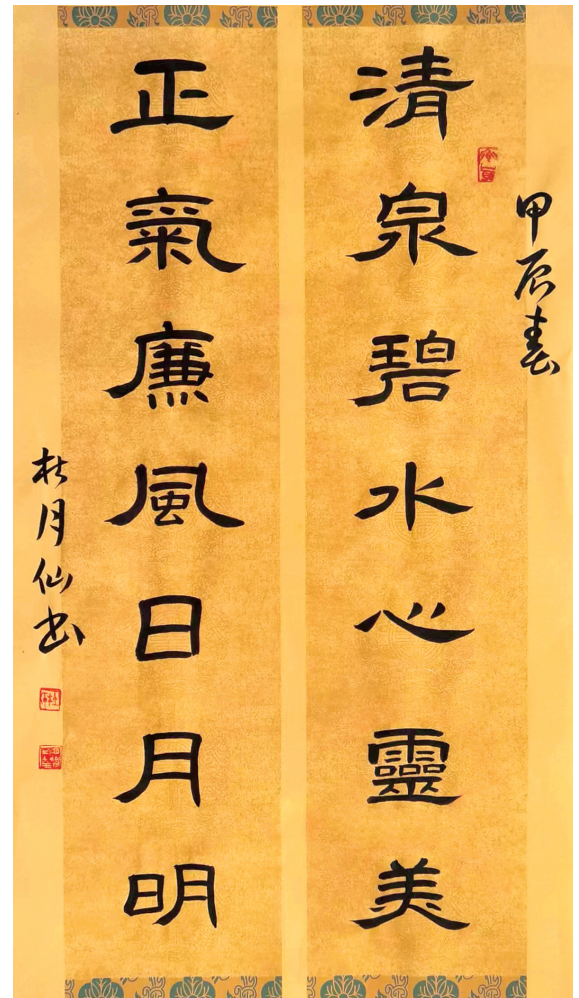 甲辰春
清泉碧水心靈美
正氣廉風日月明
杜月仙書